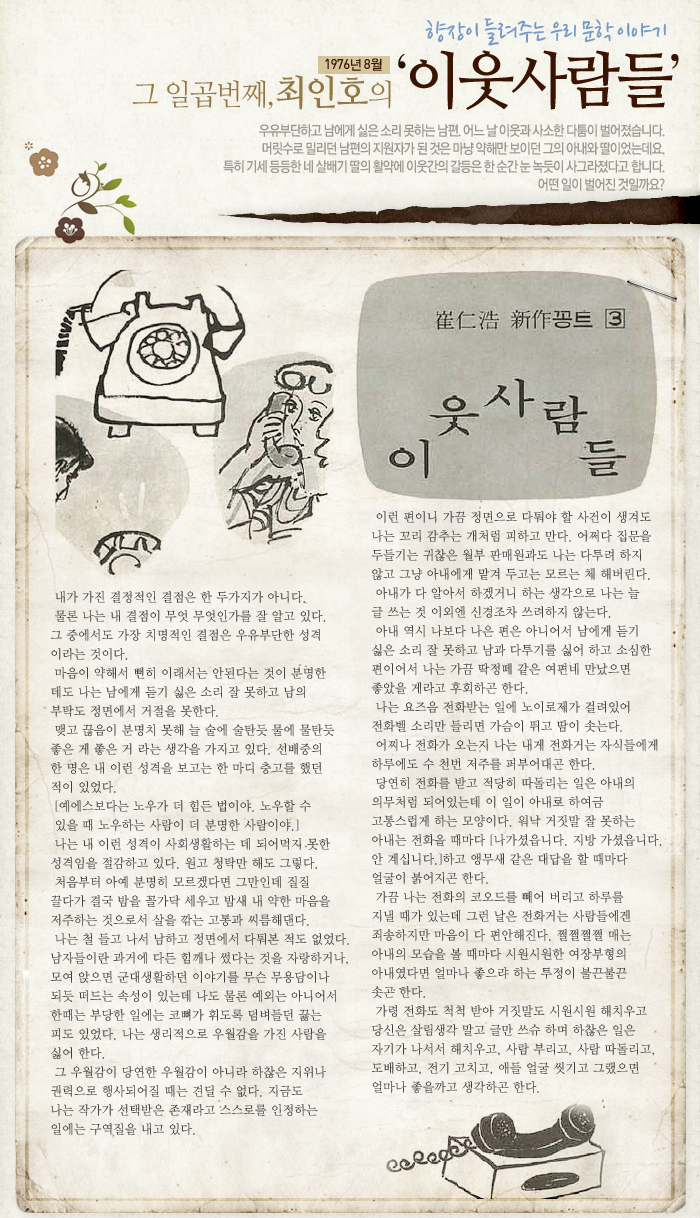 향장이 들려주는 우리 문학 이야기
1976년 8월
그 일곱번째, 최인호의 '이웃사람들'
우유부단하고 남에게 싫은 소리 못하는 남편, 어느 날 이웃과 사소한 다툼이 벌어졌습니다.
머릿수로 밀리던 남편의 지원자가 된 것은 마냥 약해만 보이던 그의 아내와 딸이었는데요.
특히 기세 등등한 네 살배기 딸의 활약에 이웃간의 갈등은 한 순간 눈 녹듯이 사그라졌다고 합니다.
어떤 일이 벌어진 것일까요?
崔仁浩 新作꽁트 3
이웃사람들
내가 가진 결정적인 결점은 한 두가지가 아니다.
물론 나는 내 결점이 무엇 무엇인가를 잘 알고 있다.
그 중에서도 가장 치명적인 결점은 우유부단한 성격
이라는 것이다.
마음이 약해서 뻔히 이래서는 안된다는 것이 분명한
데도 나는 남에게 듣기 싫은 소리 잘 못하고 남의
부탁도 정면에서 거절을 못한다.
맺고 끊음이 분명치 못해 늘 술에 술탄듯 물에 물탄듯
좋은 게 좋은 거 라는 생각을 가지고 있다. 선배중의
한 명은 내 이런 성격을 보고는 한 마디 충고를 했던
적이 있었다.
[예에스보다는 노우가 더 힘든 법이야. 노우할 수
있을 때 노우하는 사람이 더 분명한 사람이야.]
나는 내 이런 성격이 사회생활하는 데 되어먹지 못한
성격임을 절감하고 있다. 원고 청탁만 해도 그렇다.
처음부터 아예 분명히 모르겠다면 그만인데 질질
끌다가 결국 밤을 꼴가닥 세우고 밤새 내 약한 마음을
저주하는 것으로서 살을 깎는 고통과 씨름해댄다.
나는 철 들고 나서 남하고 정면에서 다퉈본 적도 없었다.
남자들이란 과거에 다든 힘깨나 썼다는 것을 자랑하거나,
모여 앉으면 군대생활하던 이야기를 무슨 무용담이나
되듯 떠드는 속성이 있는데 나도 물론 예외는 아니어서
한때는 부당한 일에는 코뼈가 휘도록 덤벼들던 끓는
피도 있었다. 나는 생리적으로 우월감을 가진 사람을
싫어 한다.
그 우월감이 당연한 우월감이 아니라 하찮은 지위나
권력으로 행사되어질 때는 견딜 수 없다. 지금도
나는 작가가 선택받은 존재라고 스스로를 인정하는
일에는 구역질을 내고 있다.
이런 편이니 가끔 정면으로 다퉈야 할 사건이 생겨도
나는 꼬리 감추는 개처럼 피하고 만다. 어쩌다 집문을
두들기는 귀찮은 월부 판매원과도 나는 다투려 하지
않고 그냥 아내에게 맡겨 두고는 모르는 체 해버린다.
아내가 다 알아서 하겠거니 하는 생각으로 나는 늘
글 쓰는 것 이외엔 신경조차 쓰려하지 않는다.
아내 역시 나보다 나은 편은 아니어서 남에게 듣기
싫은 소리 잘 못하고 남과 다투기를 싫어 하고 소심한
편이어서 나는 가끔 딱정떼 같은 여편네 만났으면
좋았을 게라고 후회하곤 한다.
나는 요즈음 전화받는 일에 노이로제가 걸려있어
전화벨 소리만 들리면 가슴이 뛰고 땀이 솟는다.
어찌나 전화가 오는지 나는 내게 전화거는 자식들에게
하루에도 수 천번 저주를 퍼부어대곤 한다.
당연히 전화를 받고 적당히 따돌리는 일은 아내의
의무처럼 되어있는데 이 일이 아내로 하여금
고통스럽게 하는 모양이다. 워낙 거짓말 잘 못하는
아내는 전화올 때마다 [나가셨읍니다. 지방 가셨읍니다.
안 계십니다.]하고 앵무새 같은 대답을 할 때마다
얼굴이 붉어지곤 한다.
가끔 나는 전화의 코오드를 빼어 버리고 하루를
지낼 때가 있는데 그런 날은 전화거는 사람들에겐
죄송하지만 마음이 다 편안해진다. 쩔쩔쩔쩔 매는
아내의 모습을 볼 때마다 시원시원한 여장부형의
아내였다면 얼마나 좋으랴 하는 투정이 불끈불끈
솟곤 한다.
가령 전화도 척척 받아 거짓말도 시원시원 해치우고
당신은 살림생각 말고 글만 쓰슈 하며 하찮은 일은
자기가 나서서 해치우고, 사람 부리고, 사람 따돌리고,
도배하고, 전기 고치고, 애들 얼굴 씻기고 그랬으면
얼마나 좋을까고 생각하곤 한다.